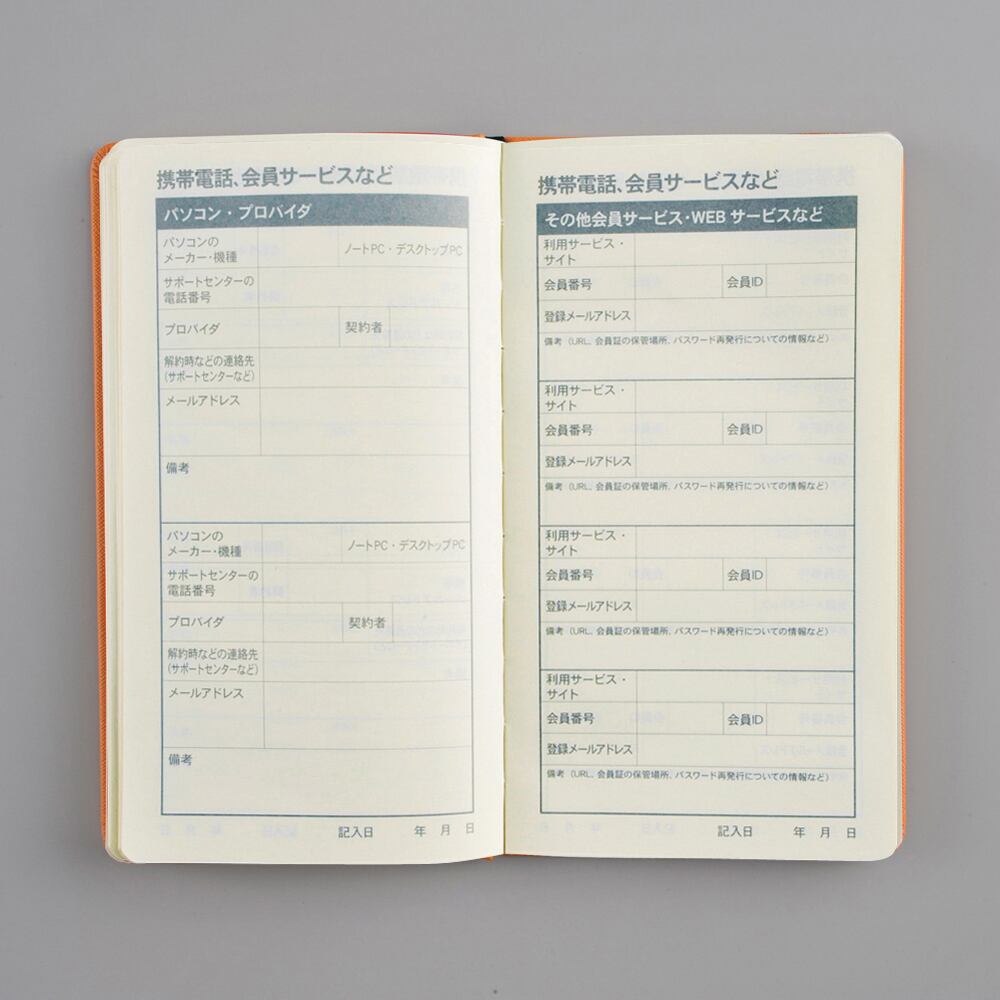 携帯電話、会員サービスなど
パソコン・プロバイダ
パソコンの
メーカー・機種
ノートPC・デスクトップPC
サポートセンターの
電話番号
プロバイダ
契約者
解約時などの連絡先
(サポートセンターなど)
メールアドレス
備考
パソコンの
メーカー・機種
ノートPC・デスクトップPC
サポートセンターの
電話番号
プロバイダ
契約者
解約時などの連絡先
(サポートセンターなど)
メールアドレス
備考
記入日 年 月 日
携帯電話、会員サービスなど
その他会員サービス・WEB サービスなど
利用サービス・
サイト
会員番号
会員ID
登録メールアドレス
備考（URL, 会員証の保管場所, パスワード再発行についての情報など）
利用サービス・
サイト
会員番号
会員ID
登録メールアドレス
備考（URL, 会員証の保管場所, パスワード再発行についての情報など）
利用サービス・
サイト
会員番号
会員ID
登録メールアドレス
備考（URL, 会員証の保管場所, パスワード再発行についての情報など）
利用サービス・
サイト
会員番号
会員ID
登録メールアドレス
備考（URL, 会員証の保管場所, パスワード再発行についての情報など）
記入日 年 月 日